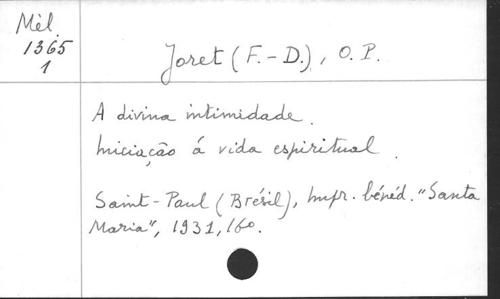 Mél.
1365
1
Joret (F.-D.), O.P.
A divina intimidade.
Iniciação á vida espiritual.
Saint-Paul (Brésil), Impr. bénéd. "Santa
Maria", 1931, 16°.